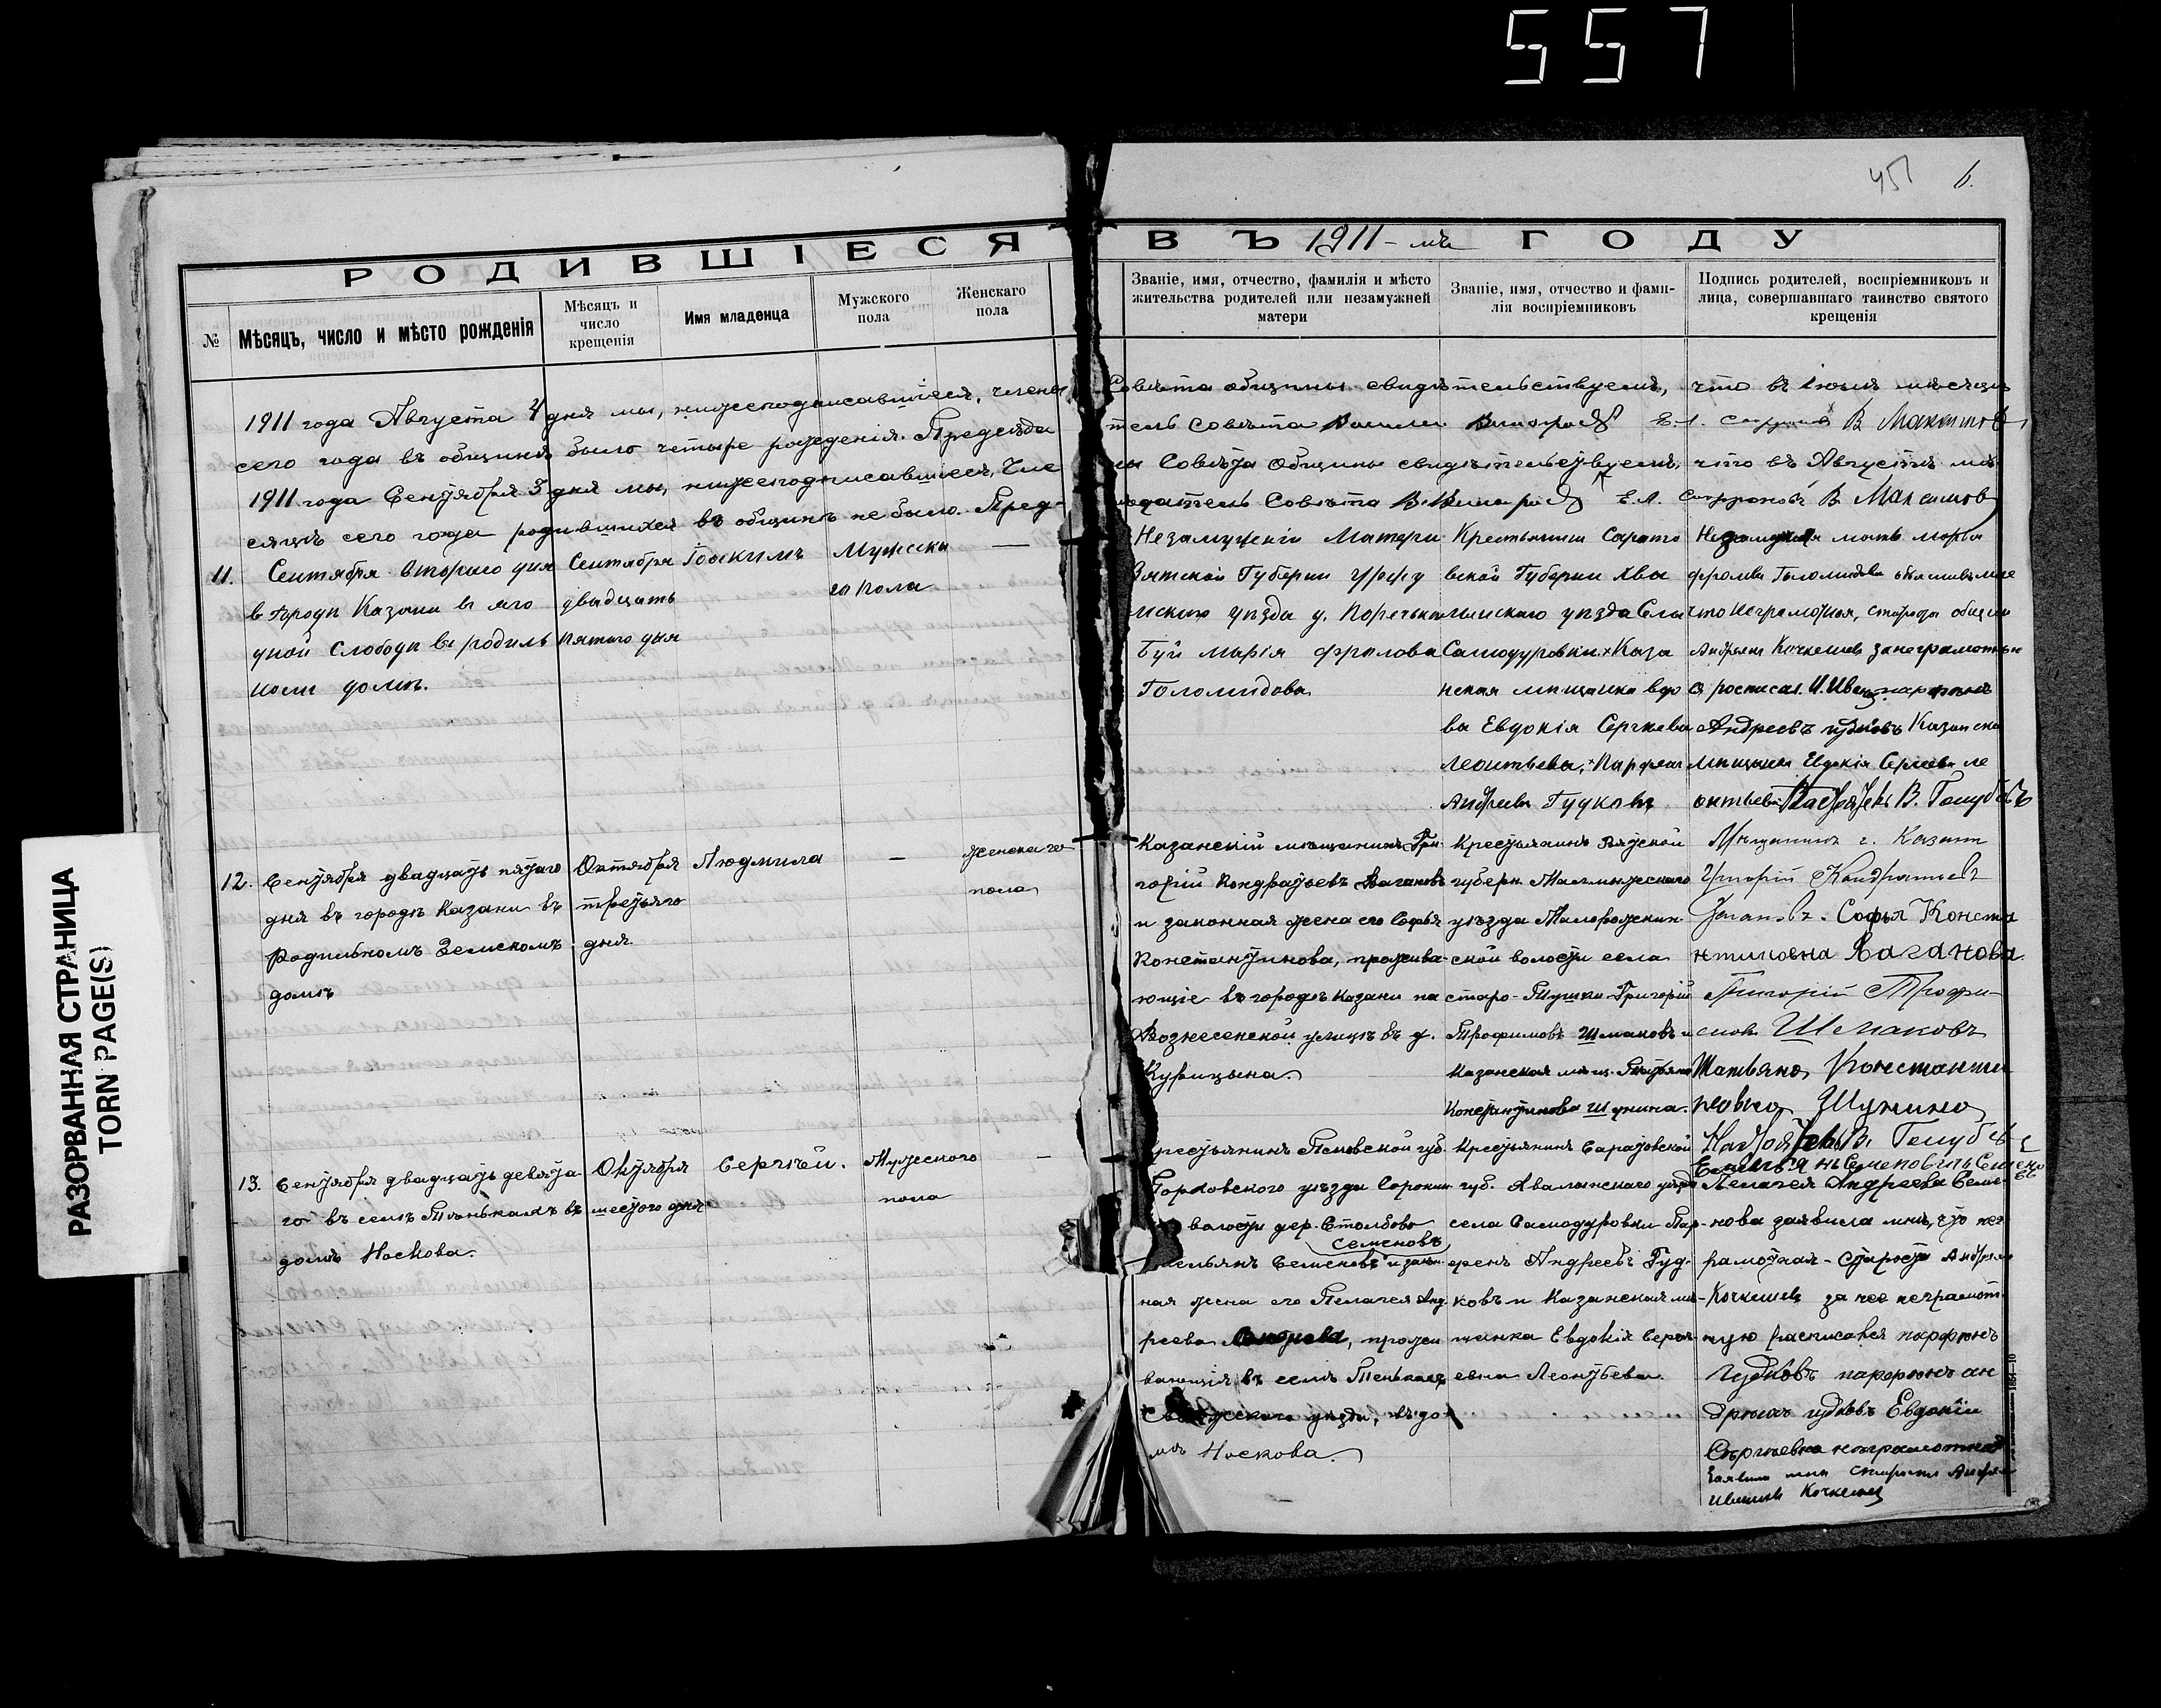 557
451 6.
РОДИВШІЕСЯ ВЪ 1911-мъ ГОДУ
№
Мѣсяцъ, число и мѣсто рожденія
Мѣсяцъ и
число
крещенія
Имя младенца
Мужского
пола
Женскаго
пола
Званіе, имя, отчество, фамилія и мѣсто
жительства родителей или незамужней
матери
Званіе, имя, отчество и фами-
лія воспріемниковъ
Подпись родителей, воспріемниковъ и
лица, совершавшаго таинство святого
крещенія
1911 года Августа 4 дня мы, нижеподписавшіеся, члены Совѣта общины свидѣтельствуемъ, что въ іюлѣ мѣсяцѣ
сего года въ общинѣ было четыре рожденія. Предсѣда тель Совѣта В Максимовъ
1911 года Сентября 3 дня мы, нижеподписавшіеся, Чле ны Совѣта Общины свидѣтельствуемъ, что въ Августѣ мѣ
сяцѣ сего года родившихся въ общинѣ не было. Пред- сѣдатель Совѣта Е. А. Сафроновъ В Максимовъ
11.
Сентября второго дня
в городи Казани в яго
дной слободи в родиль
номи доми.
Сентября
двадцать
пятого дня
Іоакимъ
Мужеска
го пола
—
Незамужнія Матери
Вятской Губерни Уржу
мского уѣзда д. Поречька
Буй Марія Фролова
Голомидова
Крестьянин Сарато
вской Губерни Хва
лынскаго уѣзда Села
Самодуровки. Каза
нская мѣщанка вдо
ва Евдокія Сергѣева
Леонтьева, Парфен
Андреев Гудковъ
Незамужняя мать марья
фролова Голомидова объявила мне
что неграмотная, староста общин
Андреян Кочкешев за неграмотную
росписал. И. Ивановъ парфенъ
Андреевъ гудковъ Казанска
мѣщанка Евдокія Сергеева ле
онтьева Настоятель В. Голубевъ
12.
Сентября двадцать пятаго
дня въ городѣ Казани въ
Родильномъ Земскомъ
домѣ
Октября
третьяго
дня
Людмила
—
женскаго
пола
Казанскій мѣщанинъ Гри-
горій Кондратьевъ Вагановъ
и законная жена его Софья
Константинова, прожива-
ющіе въ городѣ Казани на
Вознесенской улицѣ въ д.
Курицына.
Крестьянинъ Вятской
губерн. Малмыжскаго
уѣзда Малорожкин-
ской волости села
старо-Тушки Григорій
Трофимовъ Шмаковъ и
Казанская мѣщ. Татьяна
Константинова Шунина.
Мѣщанинъ г. Казани
Григорій Кондратьевъ
Вагановъ. Софья Конста
нтиновна Ваганова.
Григорій Трофи-
мовъ Шмаковъ
Татьяна Константи
новна Шунина
Настоятель В. Голубевъ
13.
Сентября двадцать девята-
го въ селѣ Тенькахъ въ
домѣ Носкова.
Октября
шестого дня
Сергѣй.
Мужеского
пола
—
крестьянинъ Псковской губ.
Порховского уѣзда Сорокин
волости дер. Столбово
Семеновъ
Емельянъ Семеновъ и закон-
ная жена его Пелагея Анд-
реева, прожи
вающія въ селѣ Тенькахъ
Свіяжскаго уѣзда, въ до-
мѣ Носкова.
Крестьянинъ Саратовской
губ. Хвалынскаго уѣзда
села Самодуровки Пар-
фенъ Андреевъ Гуд-
ковъ и Казанская мѣ-
щанка Евдокія Сергѣ-
евна Леонтьева.
Емельянъ Семеновичъ Семено
въ
Пелагея Андреева Семе-
нова заявила мнѣ, что нег
рамотная - Староста Андреян
Кочкешевъ за нее неграмот-
ную расписался парфюнъ
гудковъ парфюнъ ан
дрюхъ гудковъ Евдокіи
Сѣргѣевна неграмотная
заявила мнѣ староста Андреян
Иванов Кочкешев
РАЗОРВАННАЯ СТРАНИЦА
TORN PAGE(S)